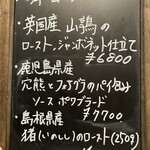 ・英国産 山鶉の
ロースト、ジャンボネット仕立て
¥6800
・鹿児島県産
穴熊とフォアグラのパイ包み
ソース ポワブラード
¥7700
・島根県産
猪(いのしし)のロースト(250g)